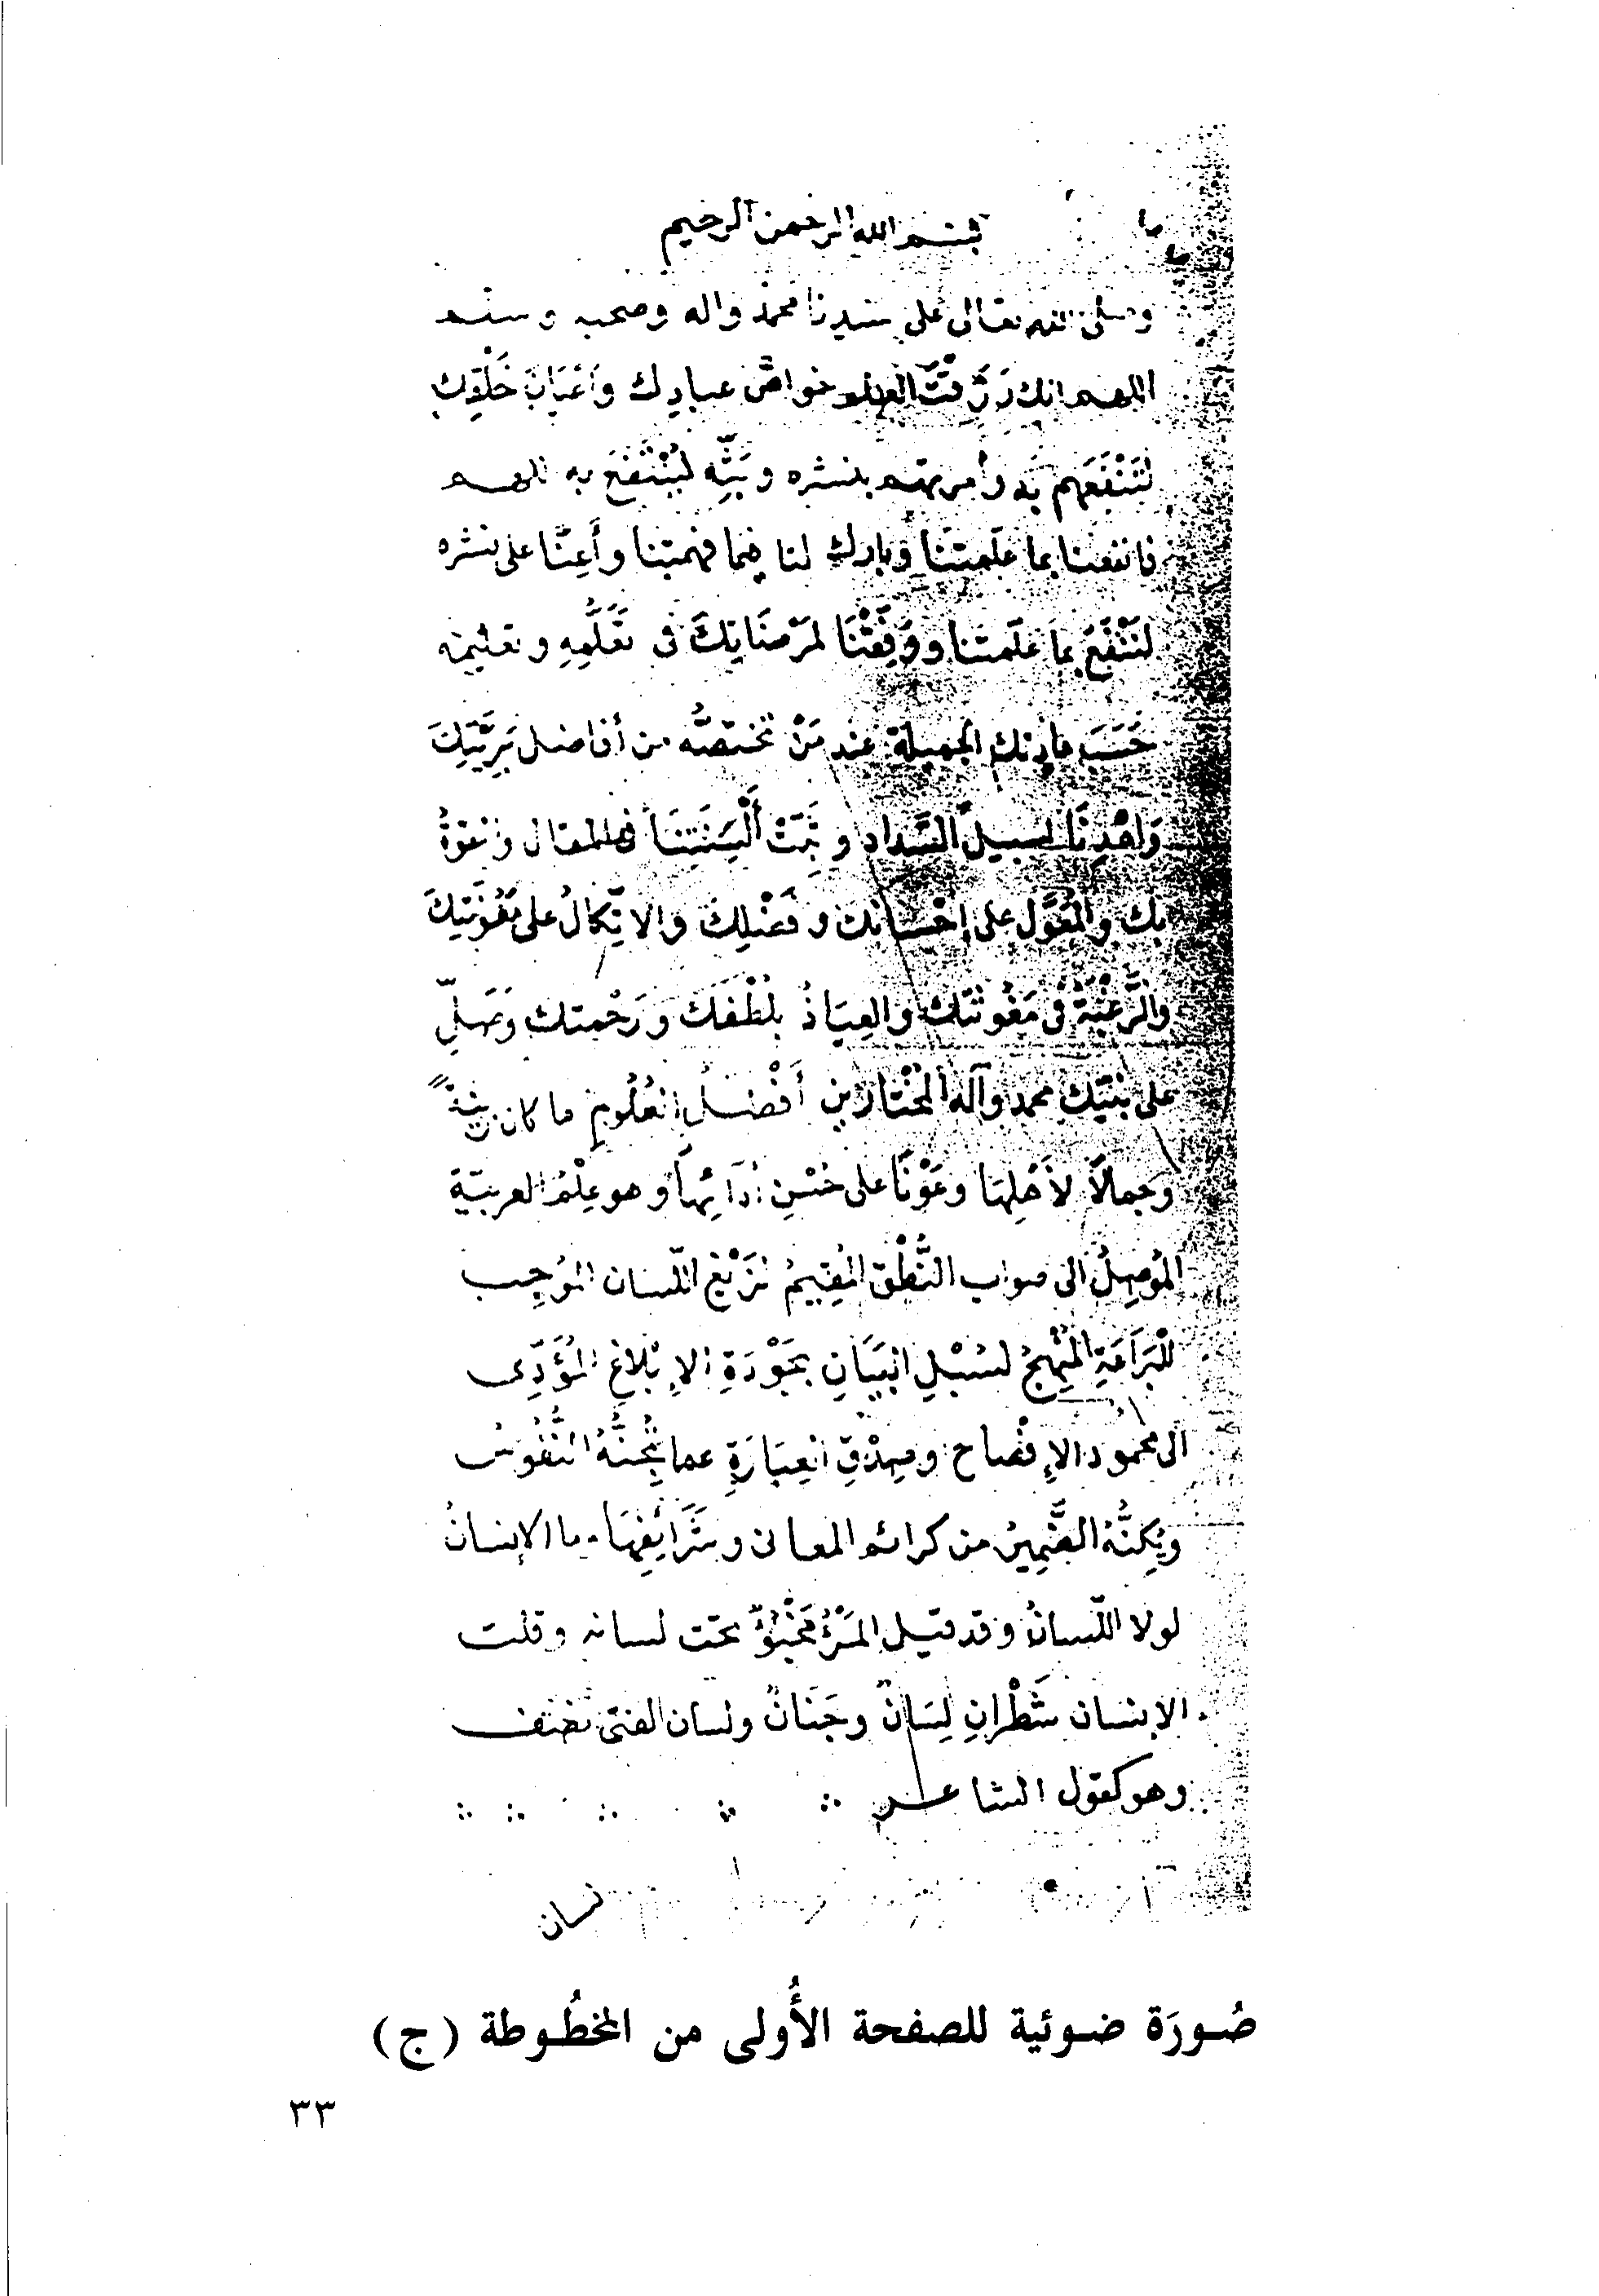 بسم الله الرحمن الرحيم
وصلى الله تعالى على سيدنا محمد واله وصحبه وسلم
اللهم انك رزقت العلم خواص عبادك وأعيان خلقك
لتنفعهم به وأمرتهم بنشره وبثه لينتفع به اللهم
فانفعنا بما علمتنا وبارك لنا فيما فهمتنا وأعنا على نشره
لننفع بما علمتنا ووفقنا لمرضاتك فى تعلمه وتعليمه
حسب عادتك الجميلة عند من تختصه من أفاضل بريتك
واهدنا لسبيل السداد وثبت ألسنتنا فى المقال
بك والمعول على إحسانك وفضلك والاتكال على معونتك
والرغبة فى مغوثتك والعياذ بلطفك ورحمتك وصل
على نبيك محمد وآله المختارين أفضل العلوم ما كان زينة
وجمالا لأهلها وعونا على حسن أدائها وهو علم العربية
الموصل الى صواب النطق المقيم لزيغ اللسان الموجب
للبراعة المنهج لسبل البيان بجودة الإبلاغ المؤدى
الى محمود الإفصاح وصدق العبارة عما تجنه النفوس
ويكنه الضمير من كرائم المعانى وشرائفها وما الإنسان
لولا اللسان وقد قيل المرء مخبوء تحت لسانه وقلت
الإنسان شطران لسان وجنان ولسان الفتى نصف
وهو كقول الشاعر
لسان
صُورَة ضوئية للصفحة الأُولى من المخطُوطة (ج)
٣٣